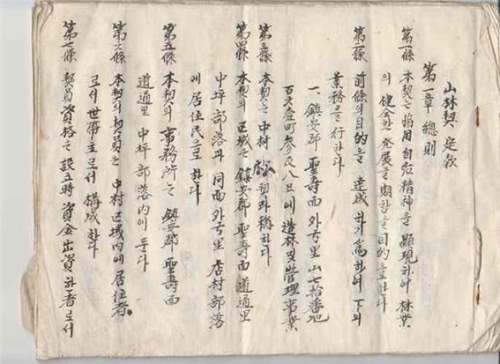 山林契 定款
第一章 總則
第一條 本契는 協同自治精神을 顯現하야 林業
의 健全한 發展을 期함을 目的으로 한다
第二條 前條의 目的을 達成하기 爲하야 下의
業務를 行한다
一、鎭安郡 聖壽面 外弓里 山 番地
百 町 參反八 에 造林 및 管理事業
第三條 本契는 中村 契라 稱한다
第四條 本契의 區域은 鎭安郡 聖壽面 道通里
中坪部落과 同面 外弓里 店村部落
에 居住民으로 한다
第五條 本契의 事務所는 鎭安郡 聖壽面
道通里 中坪部落內에 둔다
第六條 本契의 契員은 中村 区域內에 居住者
로서 世帶主로서 構成한다
第七條 契員資格은 設立時 資金出資한 者로서